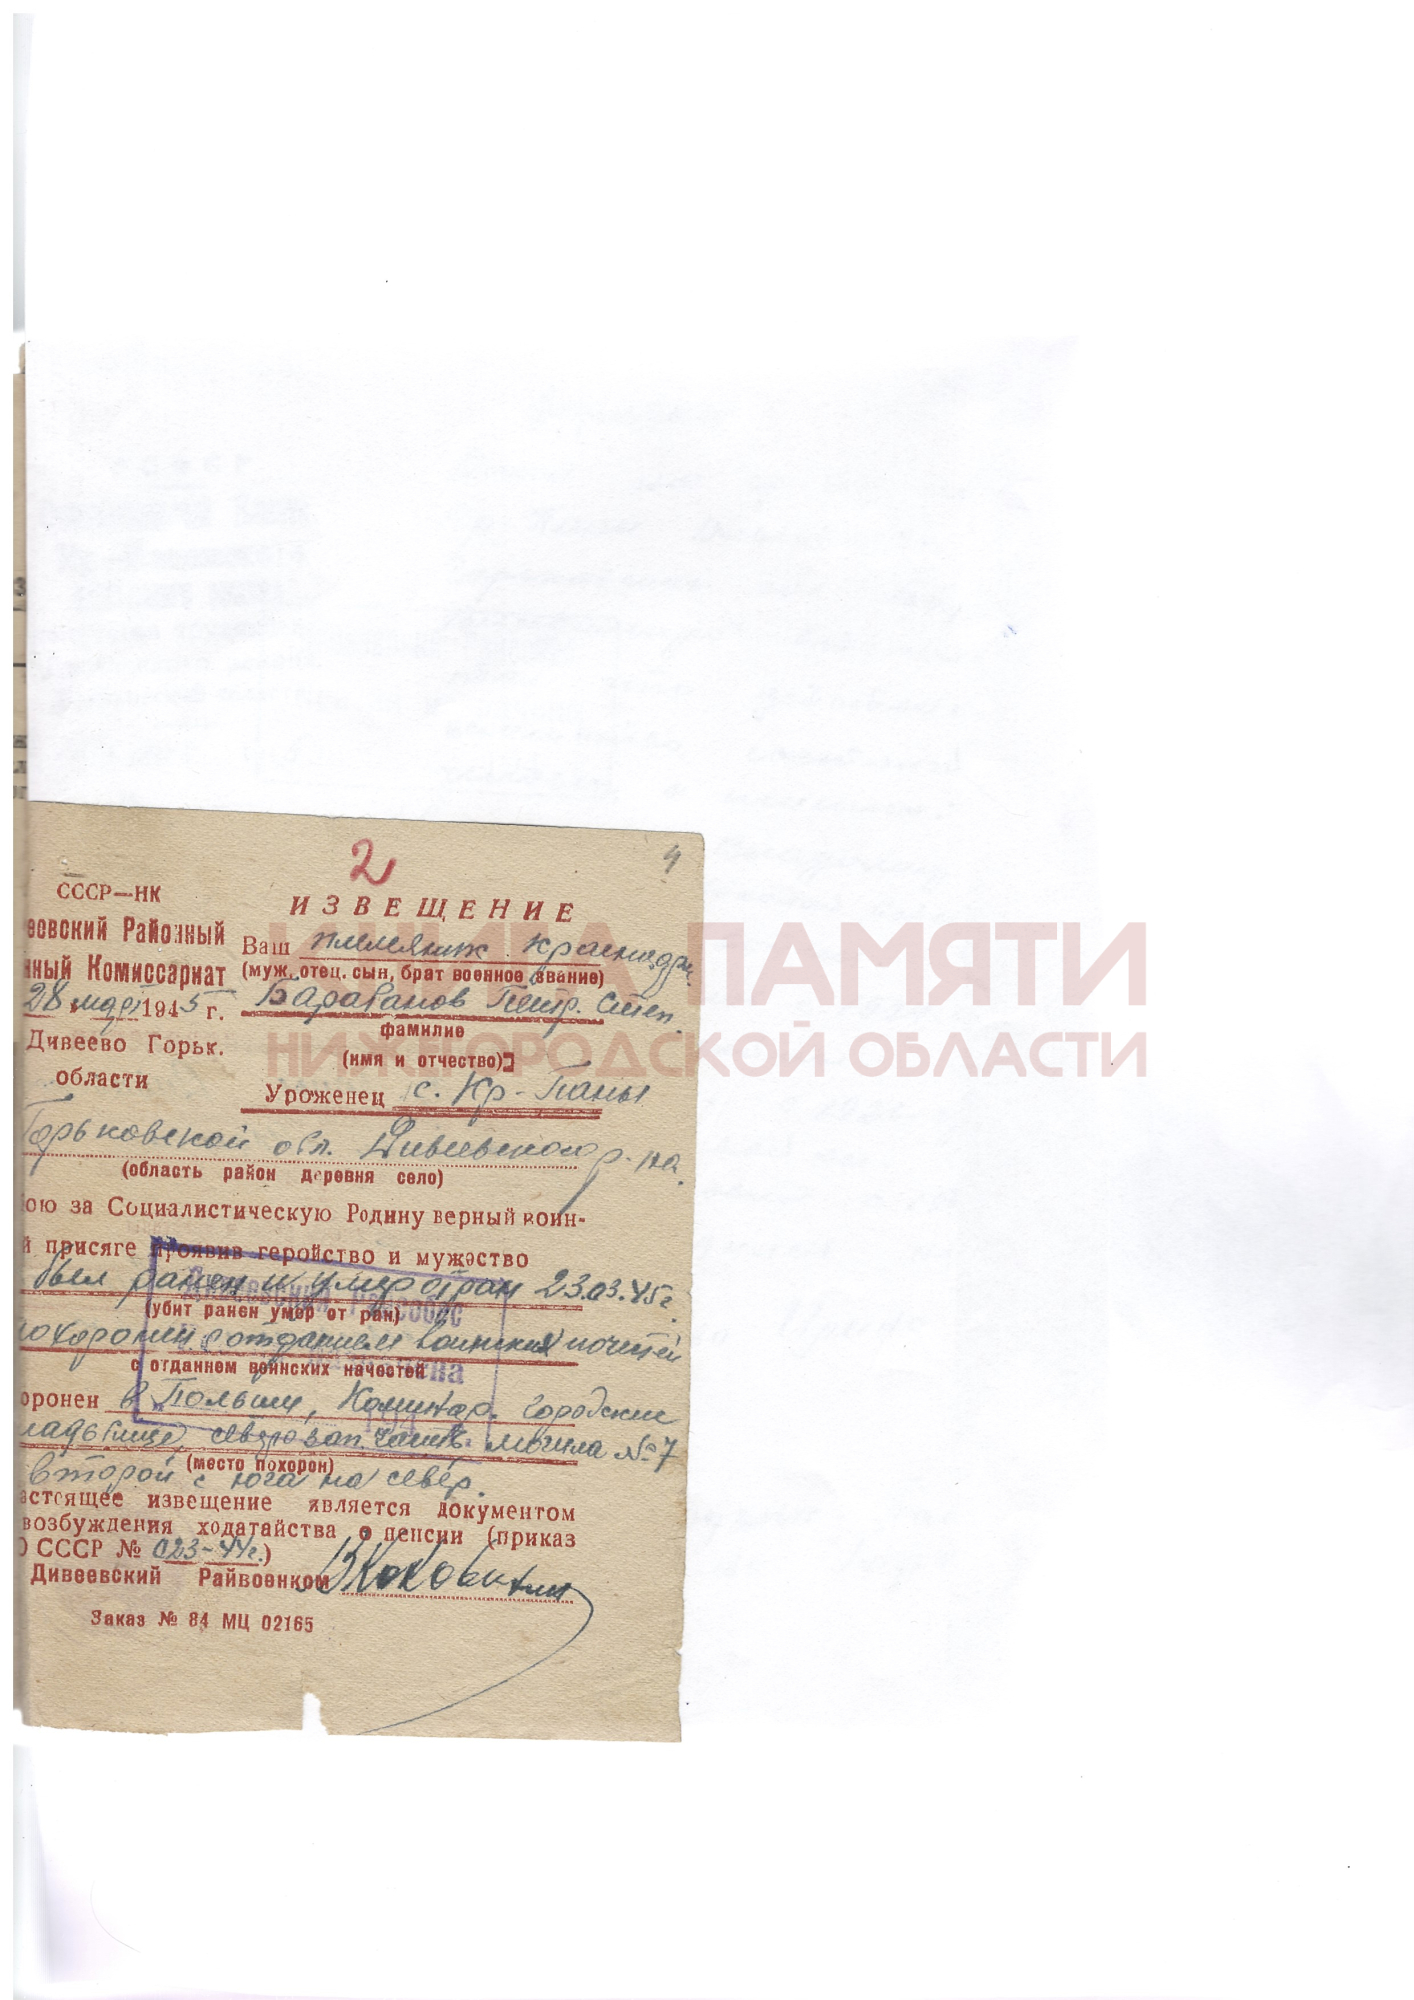 2
4
СССР—НК
ИЗВЕЩЕНИЕ
еевский Районный
нный Комиссариат
28 мая 1945 г.
Дивеево Горьк.
области
Ваш племянник красноарм.
(муж, отец, сын, брат военное звание)
Барабанов Петр. Степ.
фамилие
(имя и отчество)
Уроженец с. Кр-
Горьковской обл. Дивеевского р-на.
(область район деревня село)
бою за Социалистическую Родину верный воин-
й присяге проявив геройство и мужество
был ранен и умер от ран 23.03.45г.
(убит ранен умер от ран)
похоронен с отданием воинских почестей
с отданнем воинских начестей
оронен в Польши, городское
кладбище, северо зап. часть могила №7
(место похорон)
второй с юга на север.
астоящее извещение является документом
возбуждения ходатайства о пенсии (приказ
О СССР № 023-44г.)
Дивеевский Райвоенком
Заказ № 84 МЦ 02165
КНИГА ПАМЯТИ
НИЖЕГОРОДСКОЙ ОБЛАСТИ